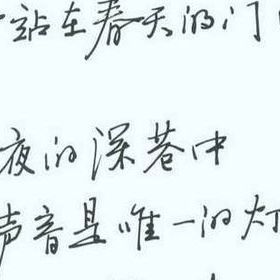 站在春天的门
夜的深巷中
声音是唯一的灯